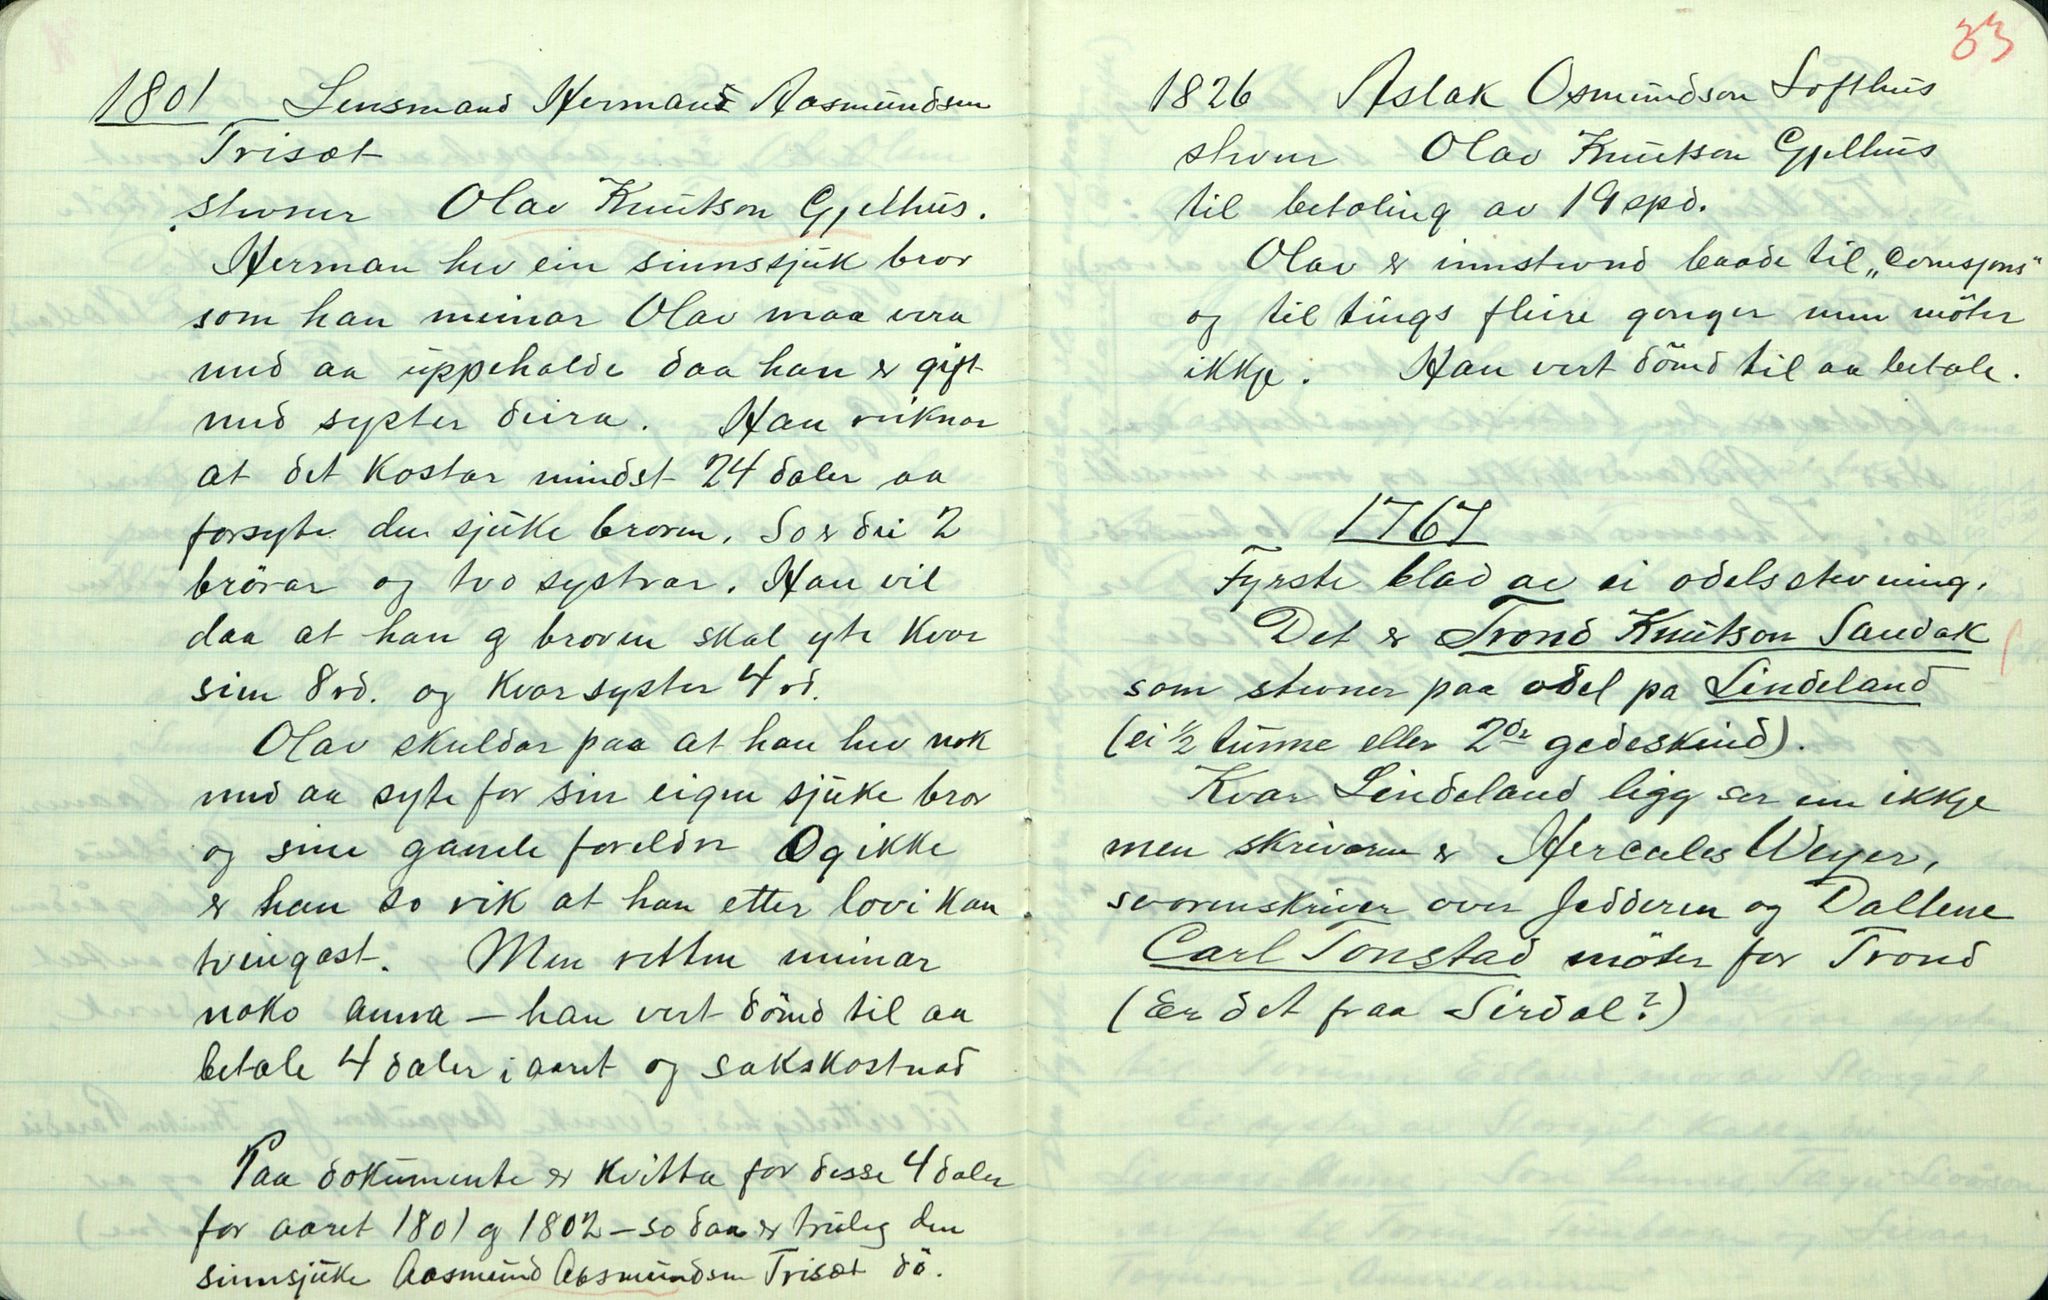 1801 Lensmand Herman Aasmundsen
Trisæt
stevner Olav Knutson Gjelhus.
Herman hev ein sinnssjuk bror
som han meinar Olav maa vera
med aa uppehalde daa han er gift
med syster deira. Han reiknar
at det kostar mindst 24 daler aa
forsyte den sjuke broren. So er dei 2
brörar og tvo systrar. Han vil
daa at han og broren skal yte kvar
sin 8 rd. og kvar syster 4 rd.
Olav skuldar paa at han hev nok
med aa syte for sin eigen sjuke bror
og sine gamle foreldre Og ikke
er han so rik at han etter lovi kan
tvingast. Men retten meinar
noko anna – han vert dömd til aa
betale 4 daler i aaret og sakskostnad
Paa dokumente er kvitta for desse 4 daler
for aaret 1801 og 1802 – so daa er truleg den
sinnsjuke Aasmund Aasmundsen Trisæt dö.
33
1826 Aslak Osmundson Lofthus
stevner Olav Knutson Gjelhus
til betaling av 19 spd.
Olav er innstevnd baade til
og til tings fleire gonger men möter
ikkje. Han vert dömd til aa betale.
1767
Fyrste blad av ei odelsstevning.
Det er Trond Knutson Sandak
som stevner paa odel pa Lindeland
(ei ½ tunne eller 2 gedeskind).
Kvar Lindeland ligg ser ein ikkje
men skrivaren er Hercules Weyer,
sorenskriver over Jedderen og Dallene
Carl Tonstad möter for Trond
(Er det fraa Sirdal?)